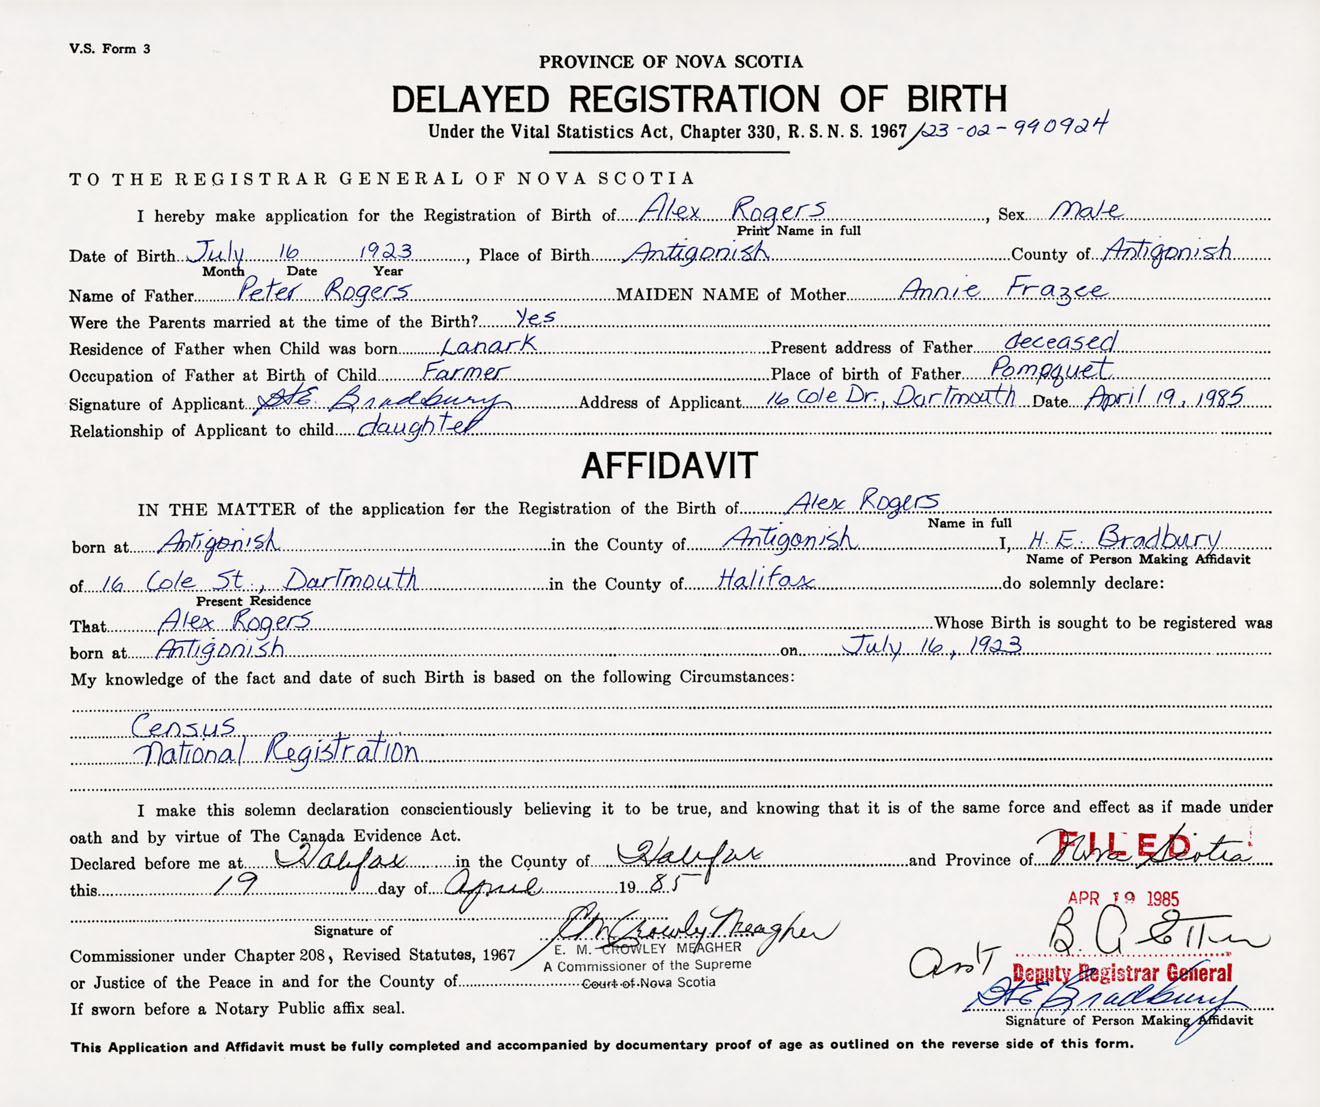 V.S. Form 3
PROVINCE OF NOVA SCOTIA
DELAYED REGISTRATION OF BIRTH
Under the Vital Statistics Act, Chapter 330, R.S.N.S. 1967 /23-02-990924
TO THE REGISTRAR GENERAL OF NOVA SCOTIA
I hereby make application for the Registration of Birth of Alex Rogers, Sex Male
Print Name in full
Date of Birth July 16 1923, Place of Birth Antigonish County of Antigonish
Month Date Year
Name of Father Peter Rogers MAIDEN NAME of Mother Annie Frazee
Were the Parents married at the time of the Birth? Yes
Residence of Father when Child was born Lanark Present address of Father deceased
Occupation of Father at Birth of Child Farmer Place of birth of Father Pompquet
Signature of Applicant Bradbury Address of Applicant 16 Cole Dr., Dartmouth Date April 19, 1985
Relationship of Applicant to child daughter
AFFIDAVIT
IN THE MATTER of the application for the Registration of the Birth of Alex Rogers
Name in full
born at Antigonish in the County of Antigonish I, H.E. Bradbury
Name of Person Making Affidavit
of 16 Cole St., Dartmouth in the County of Halifax do solemnly declare:
Present Residence
That Alex Rogers Whose Birth is sought to be registered was
born at Antigonish on July 16, 1923
My knowledge of the fact and date of such Birth is based on the following Circumstances:
Census
National Registration
I make this solemn declaration conscientiously believing it to be true, and knowing that it is of the same force and effect as if made under
oath and by virtue of The Canada Evidence Act.
FILED
Declared before me at Halifax in the County of Halifax and Province of Nova Scotia
this 19 day of April 1985
APR 19 1985
Signature of
E. M. CROWLEY MEAGHER
Commissioner under Chapter 208, Revised Statutes, 1967
A Commissioner of the Supreme
Ass't Deputy Registrar General
or Justice of the Peace in and for the County of
Court of Nova Scotia
Bradbury
If sworn before a Notary Public affix seal.
Signature of Person Making Affidavit
This Application and Affidavit must be fully completed and accompanied by documentary proof of age as outlined on the reverse side of this form.